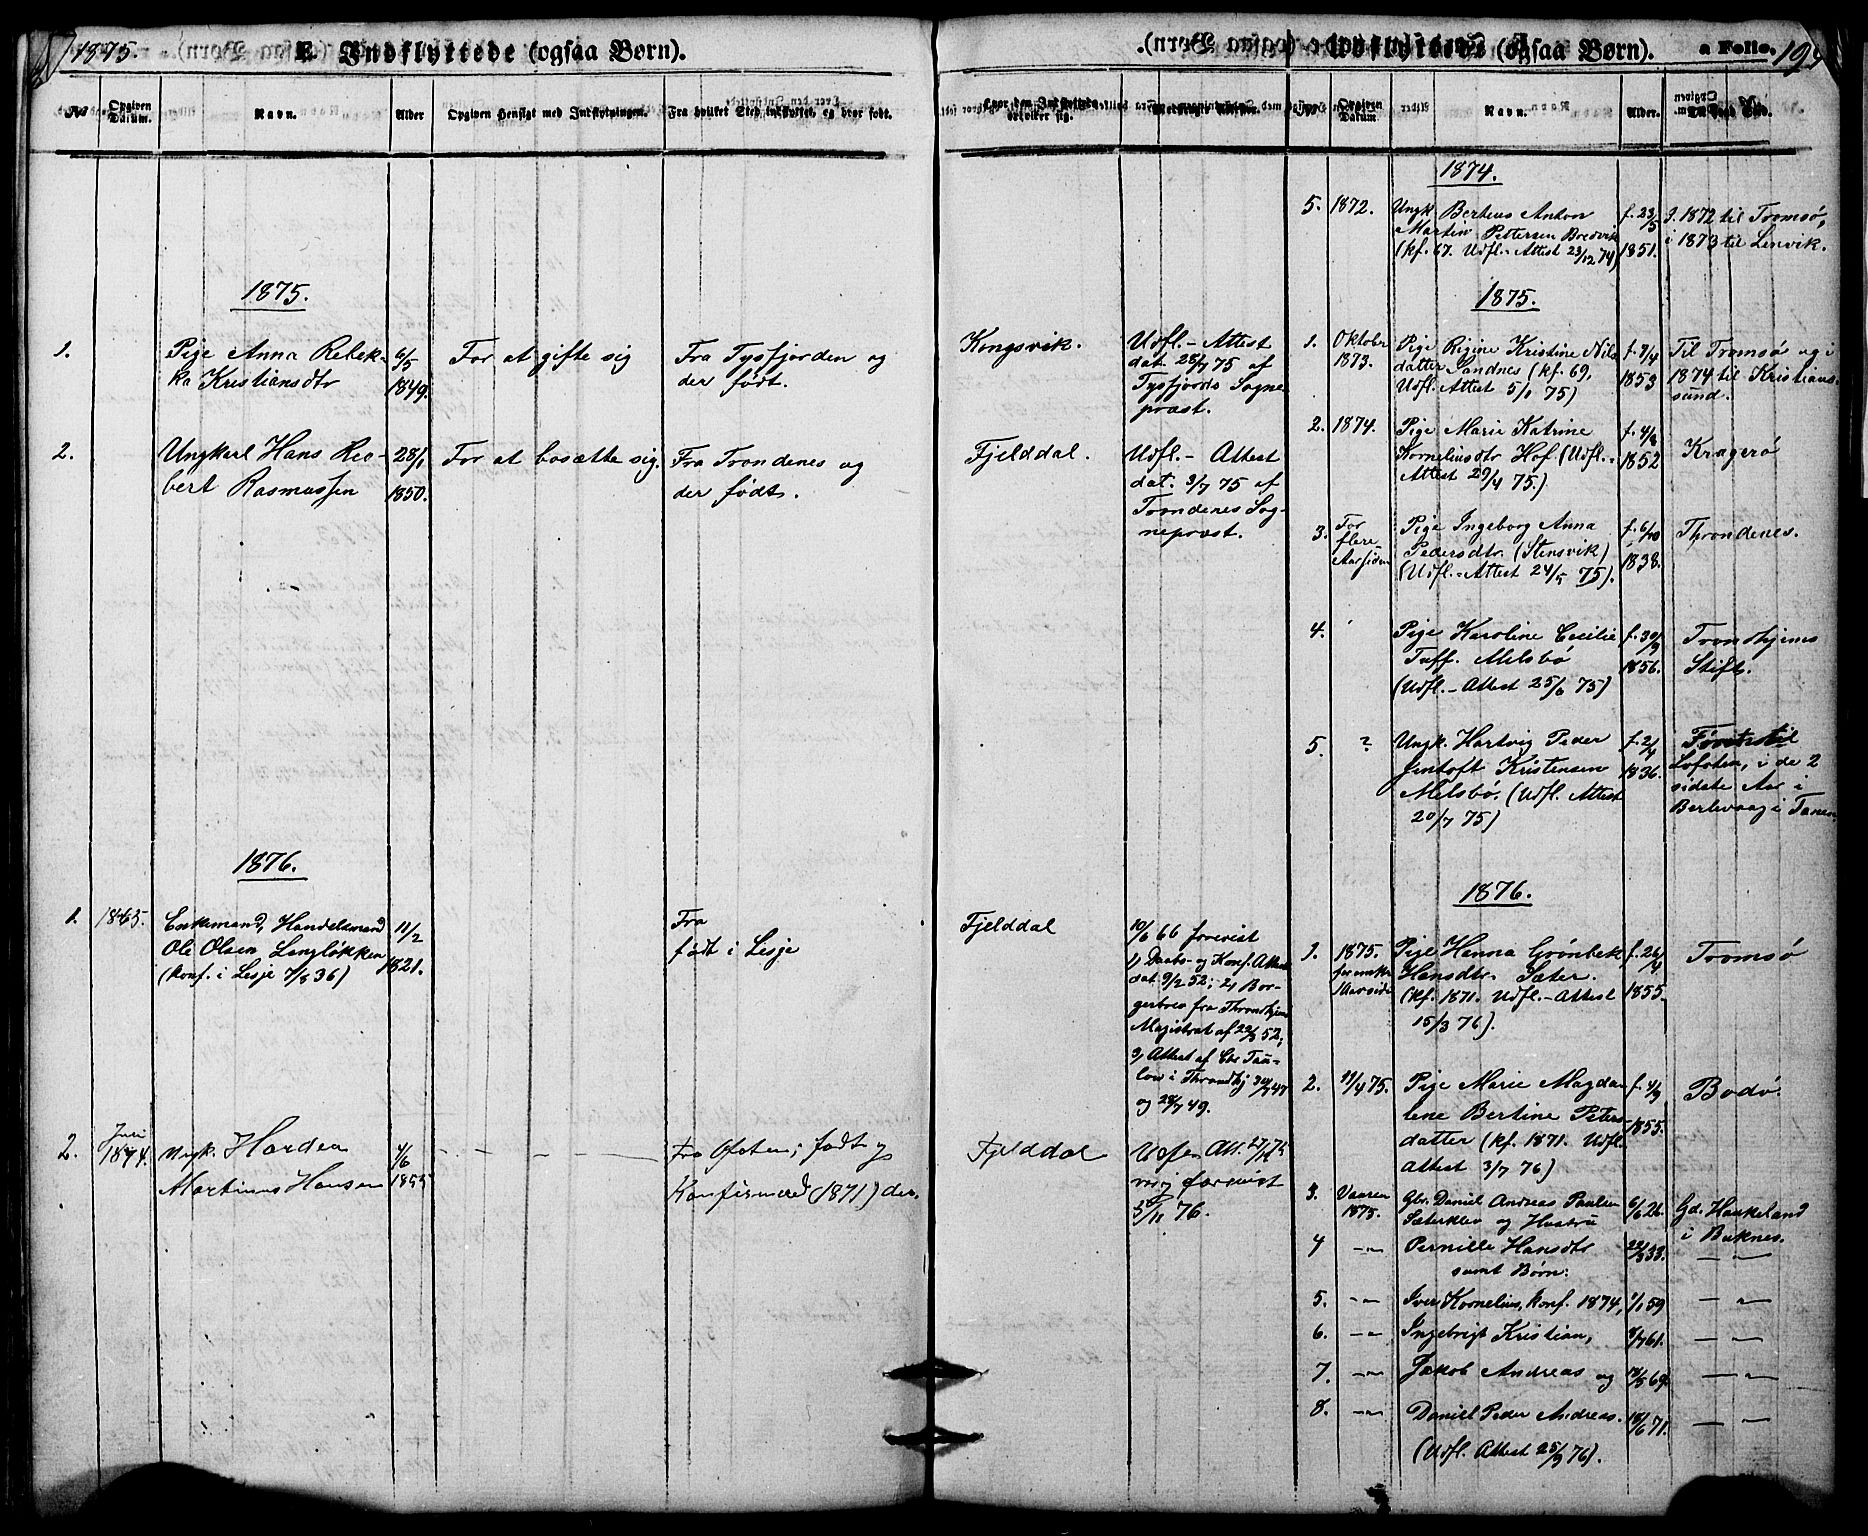 1875.
E. Indflyttede (ogsaa Børn).
Udflyttede (ogsaa Børn).
a Folio.
No
Opgiven Datum.
Navn.
Alder
Opgiven Hensigt med Indflytningen.
Fra hvilket Sted indflyttet, og hvor født.
Hvor den Indflyttede
Opgiven Datum
Navn.
Alder.
1875.
1.
Pige Anna Rebek-
ka Kristiansdtr
6/5
1849.
For at gifte sig
Fra Tysfjorden og
der født.
Kongsvik.
Udfl.- Attest
dat. 28/7 75 af
Tysfjords Sogne
præst.
2.
Ungkarl Hans Ree-
bert Rasmussen
28/1
1850.
For at bosætte sig.
Fra Trondenes og
der født.
Fjelddal.
Udfl.- Attest
dat. 3/7 75 af
Trondenes Sog-
nepræst.
1876.
1.
1865.
Enkemand, Handelsmand
Ole Olsen Langløkken
(konf. i Lesje 7/8 36)
11/2
1821.
Fra
født i Lesje
Fjelddal
10/6 66 forevist
1) Daabs- og Konf. Attest
dat. 9/2 52; 2) Bor-
gerbrev fra Throndhjems
Magistrat af 22/3 52;
3) Attest af Chr Tau-
low i Throndhj 30/7 47
og 28/7 49.
2.
Juni
1874.
Ungk. Hardea
Martinus Hansen
4/6
1853
Fra Ofoten; født og
Konfirmered (1871) der.
Fjelddal
forevist
5/11 76.
1874.
5.
1872.
Ungk. Berteus Anton
Martin Pettersen Bredvik
(kf. 67. Udfl.- Attest 23/12 74)
f. 23/5
1851.
I 1872 til Tromsø,
i 1873 til Lenvik.
1875.
1.
Oktober
1873.
Pige Rigine Kristine Nils
datter Sandnes (kf. 69,
Udfl. Attest 5/1 75)
f. 7/4
1853
Til Tromsø og i
1874 til Kristian-
sund.
2.
1874.
Pige Marie Katrine
Korneliusdtr Hof (Udfl.-
Attest 29/4 75.)
f. 4/8
1852
Kragerø
3.
For
flere
Aar siden
Pige Ingeborg Anna
Pedersdtr. (Stensvik)
(Udfl.- Attest 24/5 75).
f. 6/10
1838.
Throndenes.
4.
Pige Karoline Cecilie
Tuff. Melsbø
(Udfl.- Attest 25/6 75)
f. 30/9
1856.
Trondhjems
Stift.
5.
?
Ungk. Hartvig Peder
Jentoft Kristensen
Melsbø. (Udfl. Attest
20/7 75)
f. 2/4
1836.
Først til
Lofoten, i de 2
sidste Aar i
Berlevaag i Tanen
1876.
1.
1875.
Pige Hanna Grønbek
Hansdtr. Sæter.
(kf. 1871. Udfl.- Attest
15/3 76).
f. 26/4
1855.
Tromsø
2.
11/4 75.
Pige Marie Magda-
lene Bertine Peters
datter (kf. 1871. Udfl.
Attest 3/7 76)
f. 4/9
1855.
Bodø.
3.
Vaaren
1875.
Gbr. Daniel Andreas Paulsen
Sæterklev og Hustru
6/6 26.
Gd. Haukeland
i Buknes.
4
-"-
Pernille Hansdtr
samt Børn:
22/3 33.
-"-
5.
-"-
Iver Kornelius, konf. 1874,
1/1 59
-"-
6.
-"-
Ingebrigt Kristian,
8/7 61.
-"-
7.
-"-
Jakob Andreas og
18/5 69.
-"-
8.
-"-
Daniel Peder Andreas.
18/6 71.
-"-
(Udfl. Attest 25/9 76).